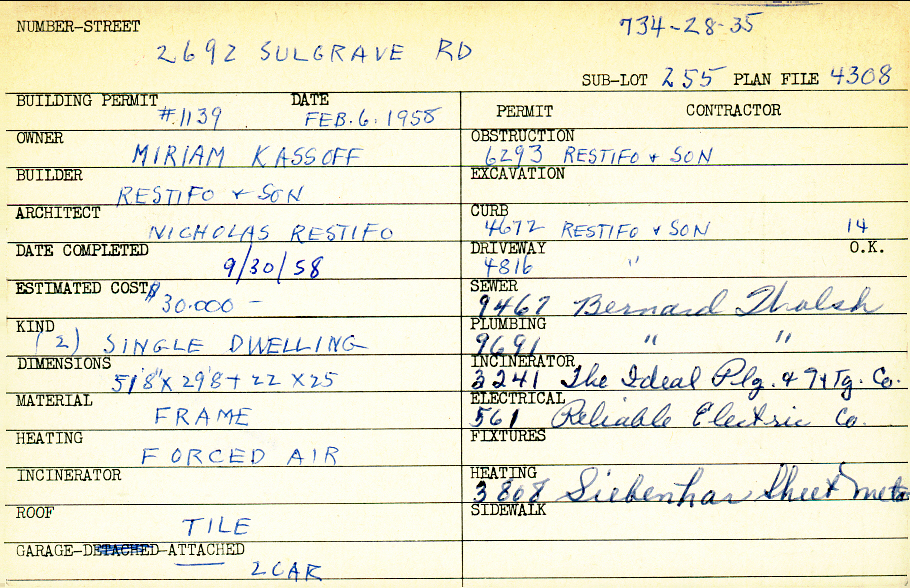 NUMBER-STREET 734-28-35
2692 SULGRAVE RD
SUB-LOT 255 PLAN FILE 4308
BUILDING PERMIT #1139 DATE FEB. 6. 1958
OWNER MIRIAM KASSOFF
BUILDER RESTIFO & SON
ARCHITECT NICHOLAS RESTIFO
DATE COMPLETED 9/30/58
ESTIMATED COST $30.000 -
KIND (2) SINGLE DWELLING
DIMENSIONS 51'8"X 29'8 + 22 X 25
MATERIAL FRAME
HEATING FORCED AIR
INCINERATOR
ROOF TILE
GARAGE-DETACHED-ATTACHED 2 CAR
PERMIT CONTRACTOR
OBSTRUCTION 6293 RESTIFO & SON
EXCAVATION
CURB 4672 RESTIFO & SON 14
DRIVEWAY 4816 " O.K.
SEWER 9467 Bernard
PLUMBING 9691 " "
INCINERATOR 3241 The Ideal Plg. & Htg. Co.
ELECTRICAL 561 Reliable Electric Co.
FIXTURES
HEATING 3808 Siebenhar Sheet Meta
SIDEWALK